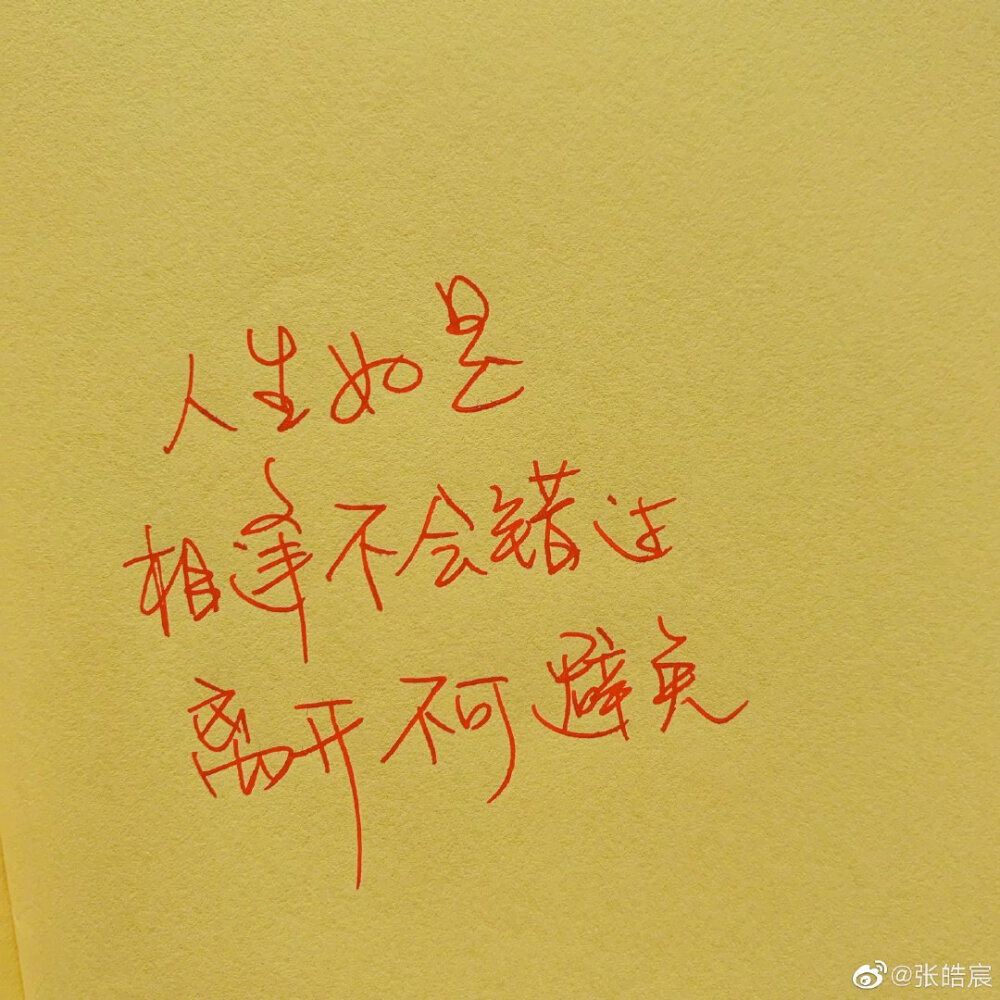 人生如是
相逢不会错过
离开不可避免
@张皓宸